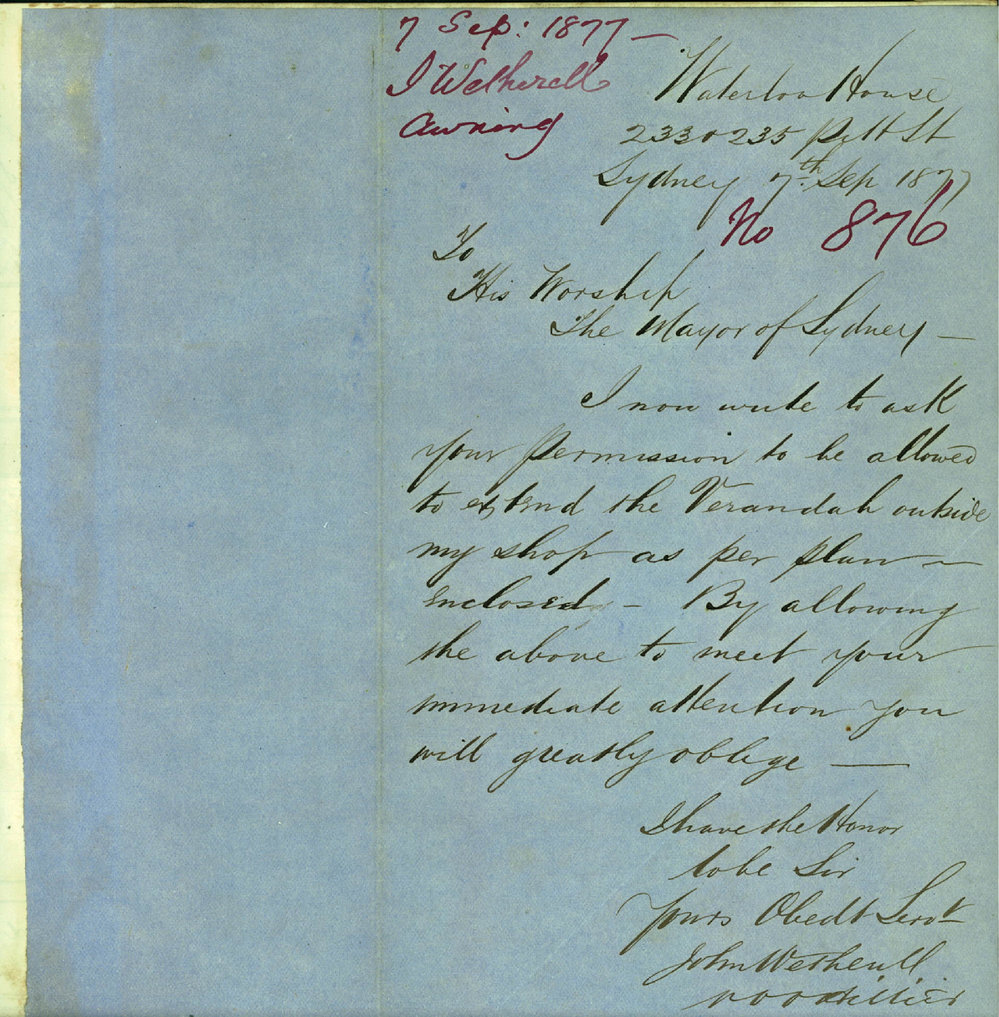 7 Sep: 1877 —
J Wetherell
Awning
Waterloo House
233 & 235 Pitt St
Sydney 7th Sep 1877
No 876
To
His Worship
The Mayor of Sydney —
I now write to ask
your permission to be allowed
to extend the Verandah outside
my shop as per plan —
enclosed — By allowing
the above to meet your
immediate attention you
will greatly oblige —
I have the Honor
to be Sir
Yours Obedt Servt
John Wetherell